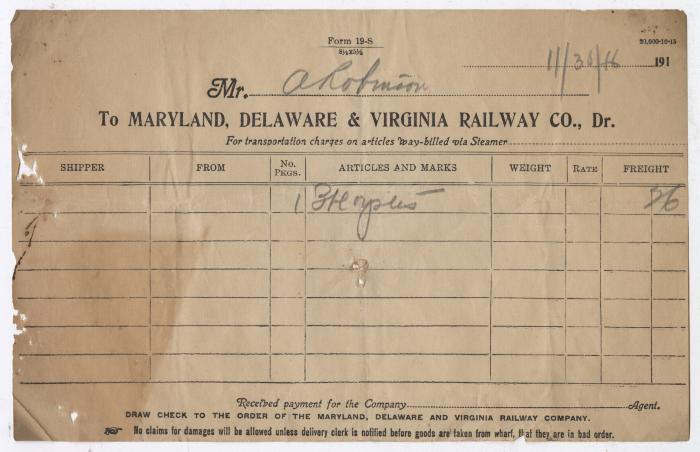 Form 19-S
8½x5½
20,000-10-15
11/30/16 191
Mr. A Robinson
To MARYLAND, DELAWARE & VIRGINIA RAILWAY CO., Dr.
For transportation charges on articles way-billed via Steamer
SHIPPER FROM No. PKGS. ARTICLES AND MARKS WEIGHT RATE FREIGHT
1 26
Received payment for the Company Agent.
DRAW CHECK TO THE ORDER OF THE MARYLAND, DELAWARE AND VIRGINIA RAILWAY COMPANY.
No claims for damages will be allowed unless delivery clerk is notified before goods are taken from wharf, that they are in bad order.